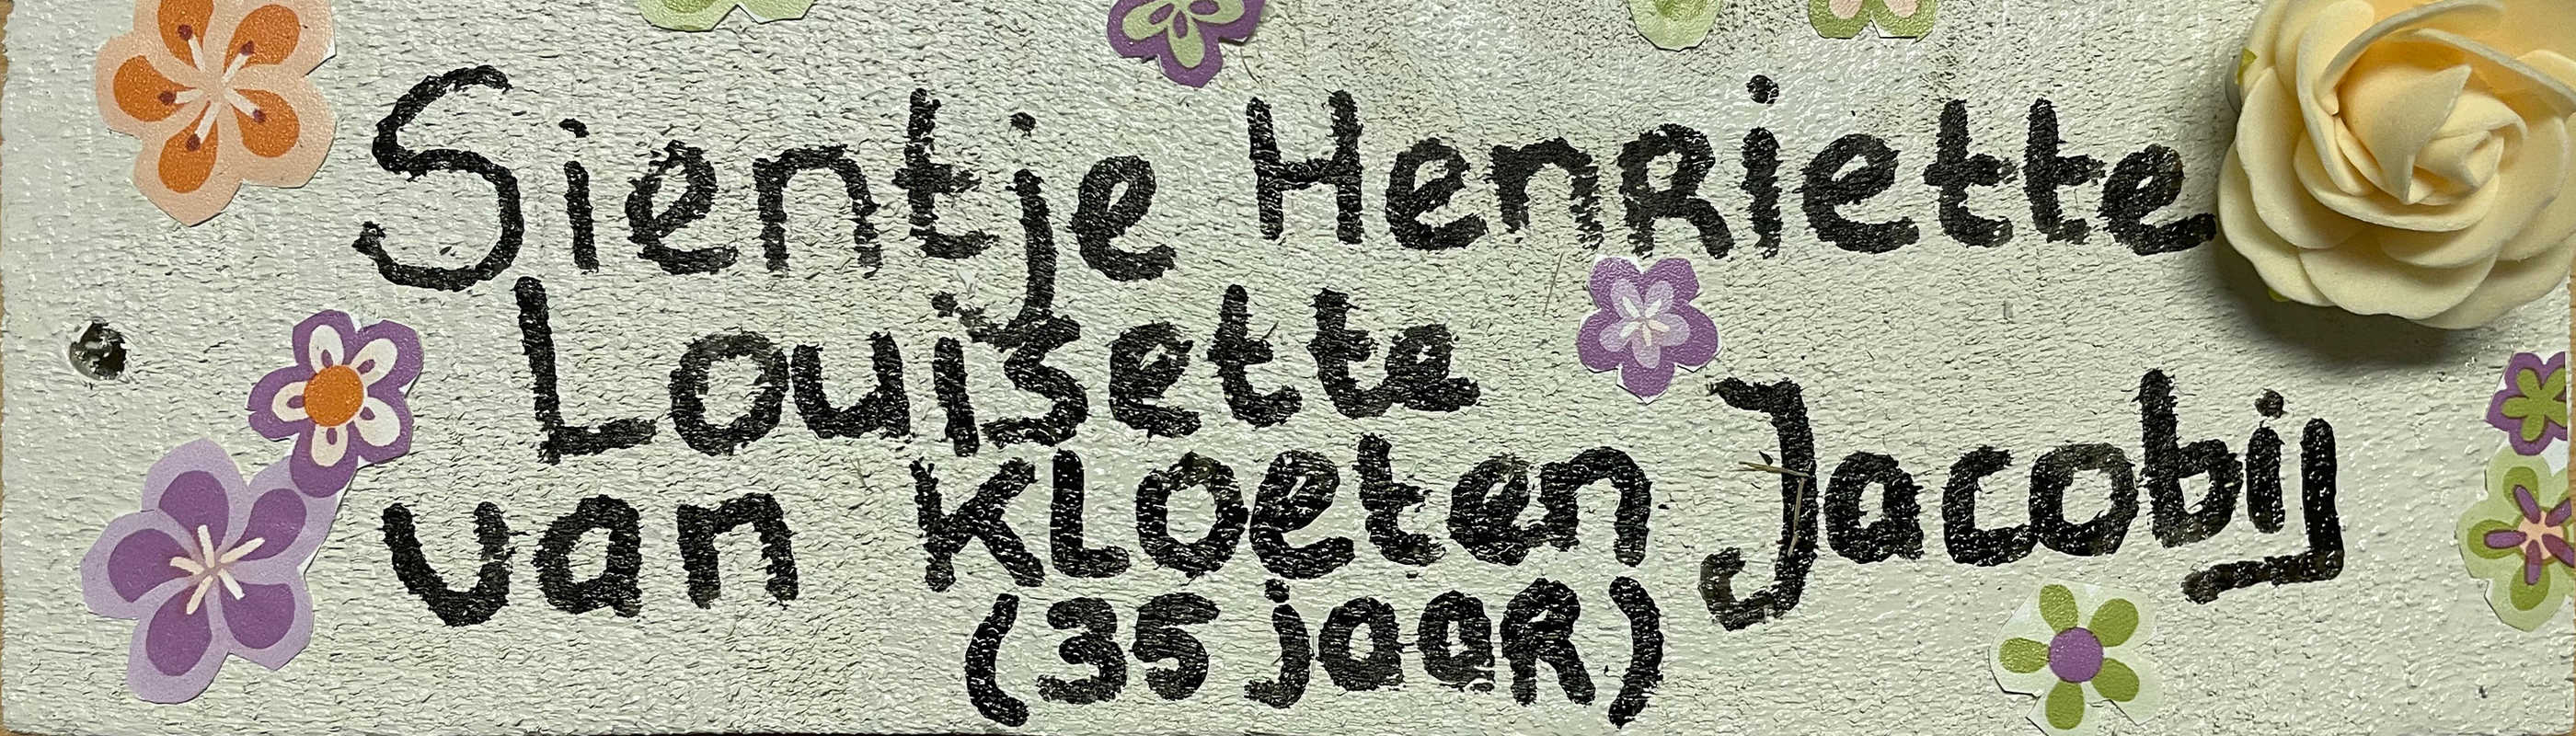 Sientje Henriette
Louisette
van Kloeten Jacobij
(35 jaar)